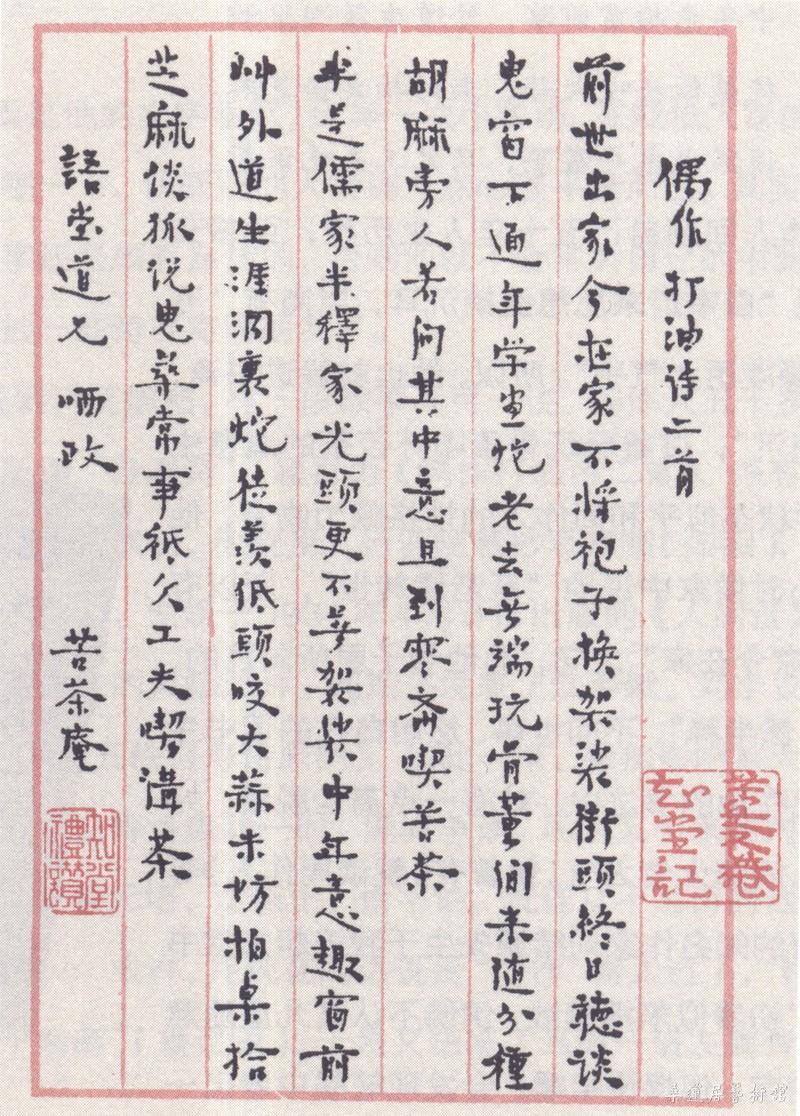 偶作打油诗二首
前世出家今在家不将袍子换袈裟街頭終日聽谈
鬼窗下通年学画蛇老去无端玩骨董闲来随分種
胡麻旁人若问其中意且到寒斋喫苦茶
半是儒家半釋家光頭更不着袈裟中年意趣窗前
艸外道生涯洞裏蛇徒羡低頭咬大蒜未妨拍桌拾
芝麻谈狐说鬼寻常事祗欠工夫喫講茶
語堂道兄 哂政 苦茶庵
知堂記
知堂禮讚